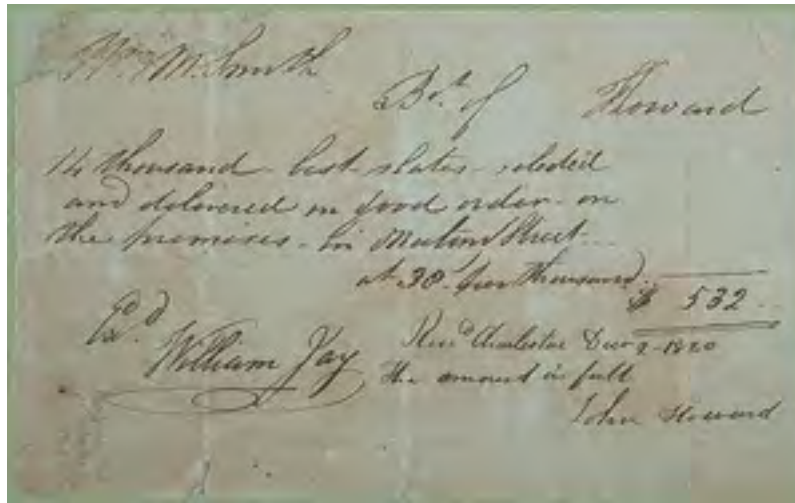 Wm. M. Smith
Bot. of Howard
14 thousand best slates selected
and delivered in good order on
the premises in Meeting Street
at 38 per thousand
$ 532
Ex.d
William Jay
Recd Charleston Decr 9 1820
the amount in full
John Howard